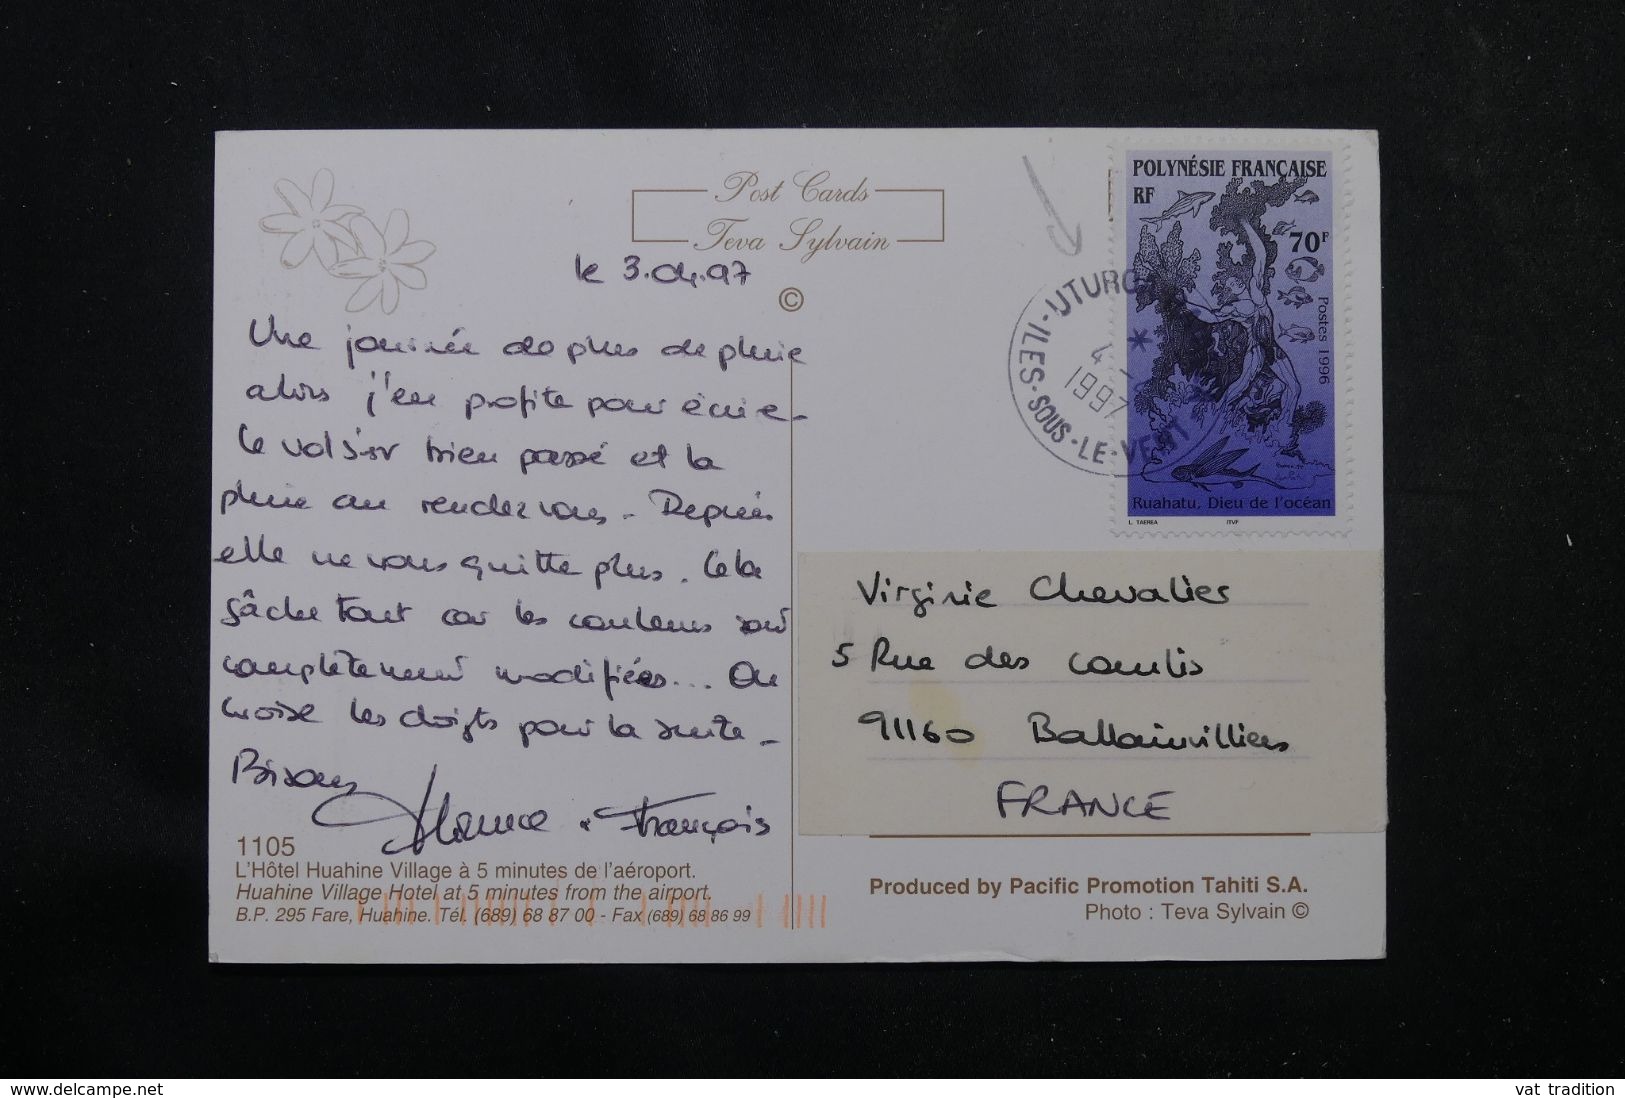 Post Cards
Teva Sylvain
©
le 3.04.97
Une journée de plus de pluie
alors j'en profite pour écrire-
le vol s'est bien passé et la
pluie au rendez vous - Depuis
elle ne nous quitte plus. Cela
gâche tout car les couleurs sont
complètement modifiées... On
croise les doigts pour la suite -
Bisous
François
1105
L'Hôtel Huahine Village à 5 minutes de l'aéroport.
Huahine Village Hotel at 5 minutes from the airport.
B.P. 295 Fare, Huahine. Tél. (689) 68 87 00 - Fax (689) 68 86 99
POLYNÉSIE FRANÇAISE
RF
70F
Postes 1996
Ruahatu, Dieu de l'océan
L. TAEREA ITVF
UTURO
4 - *
1997
ILES-SOUS-LE-VENT
Virginie Chevalier
5 Rue des
91160 Ballainvilliers
FRANCE
Produced by Pacific Promotion Tahiti S.A.
Photo : Teva Sylvain ©
www.delcampe.net
vat tradition